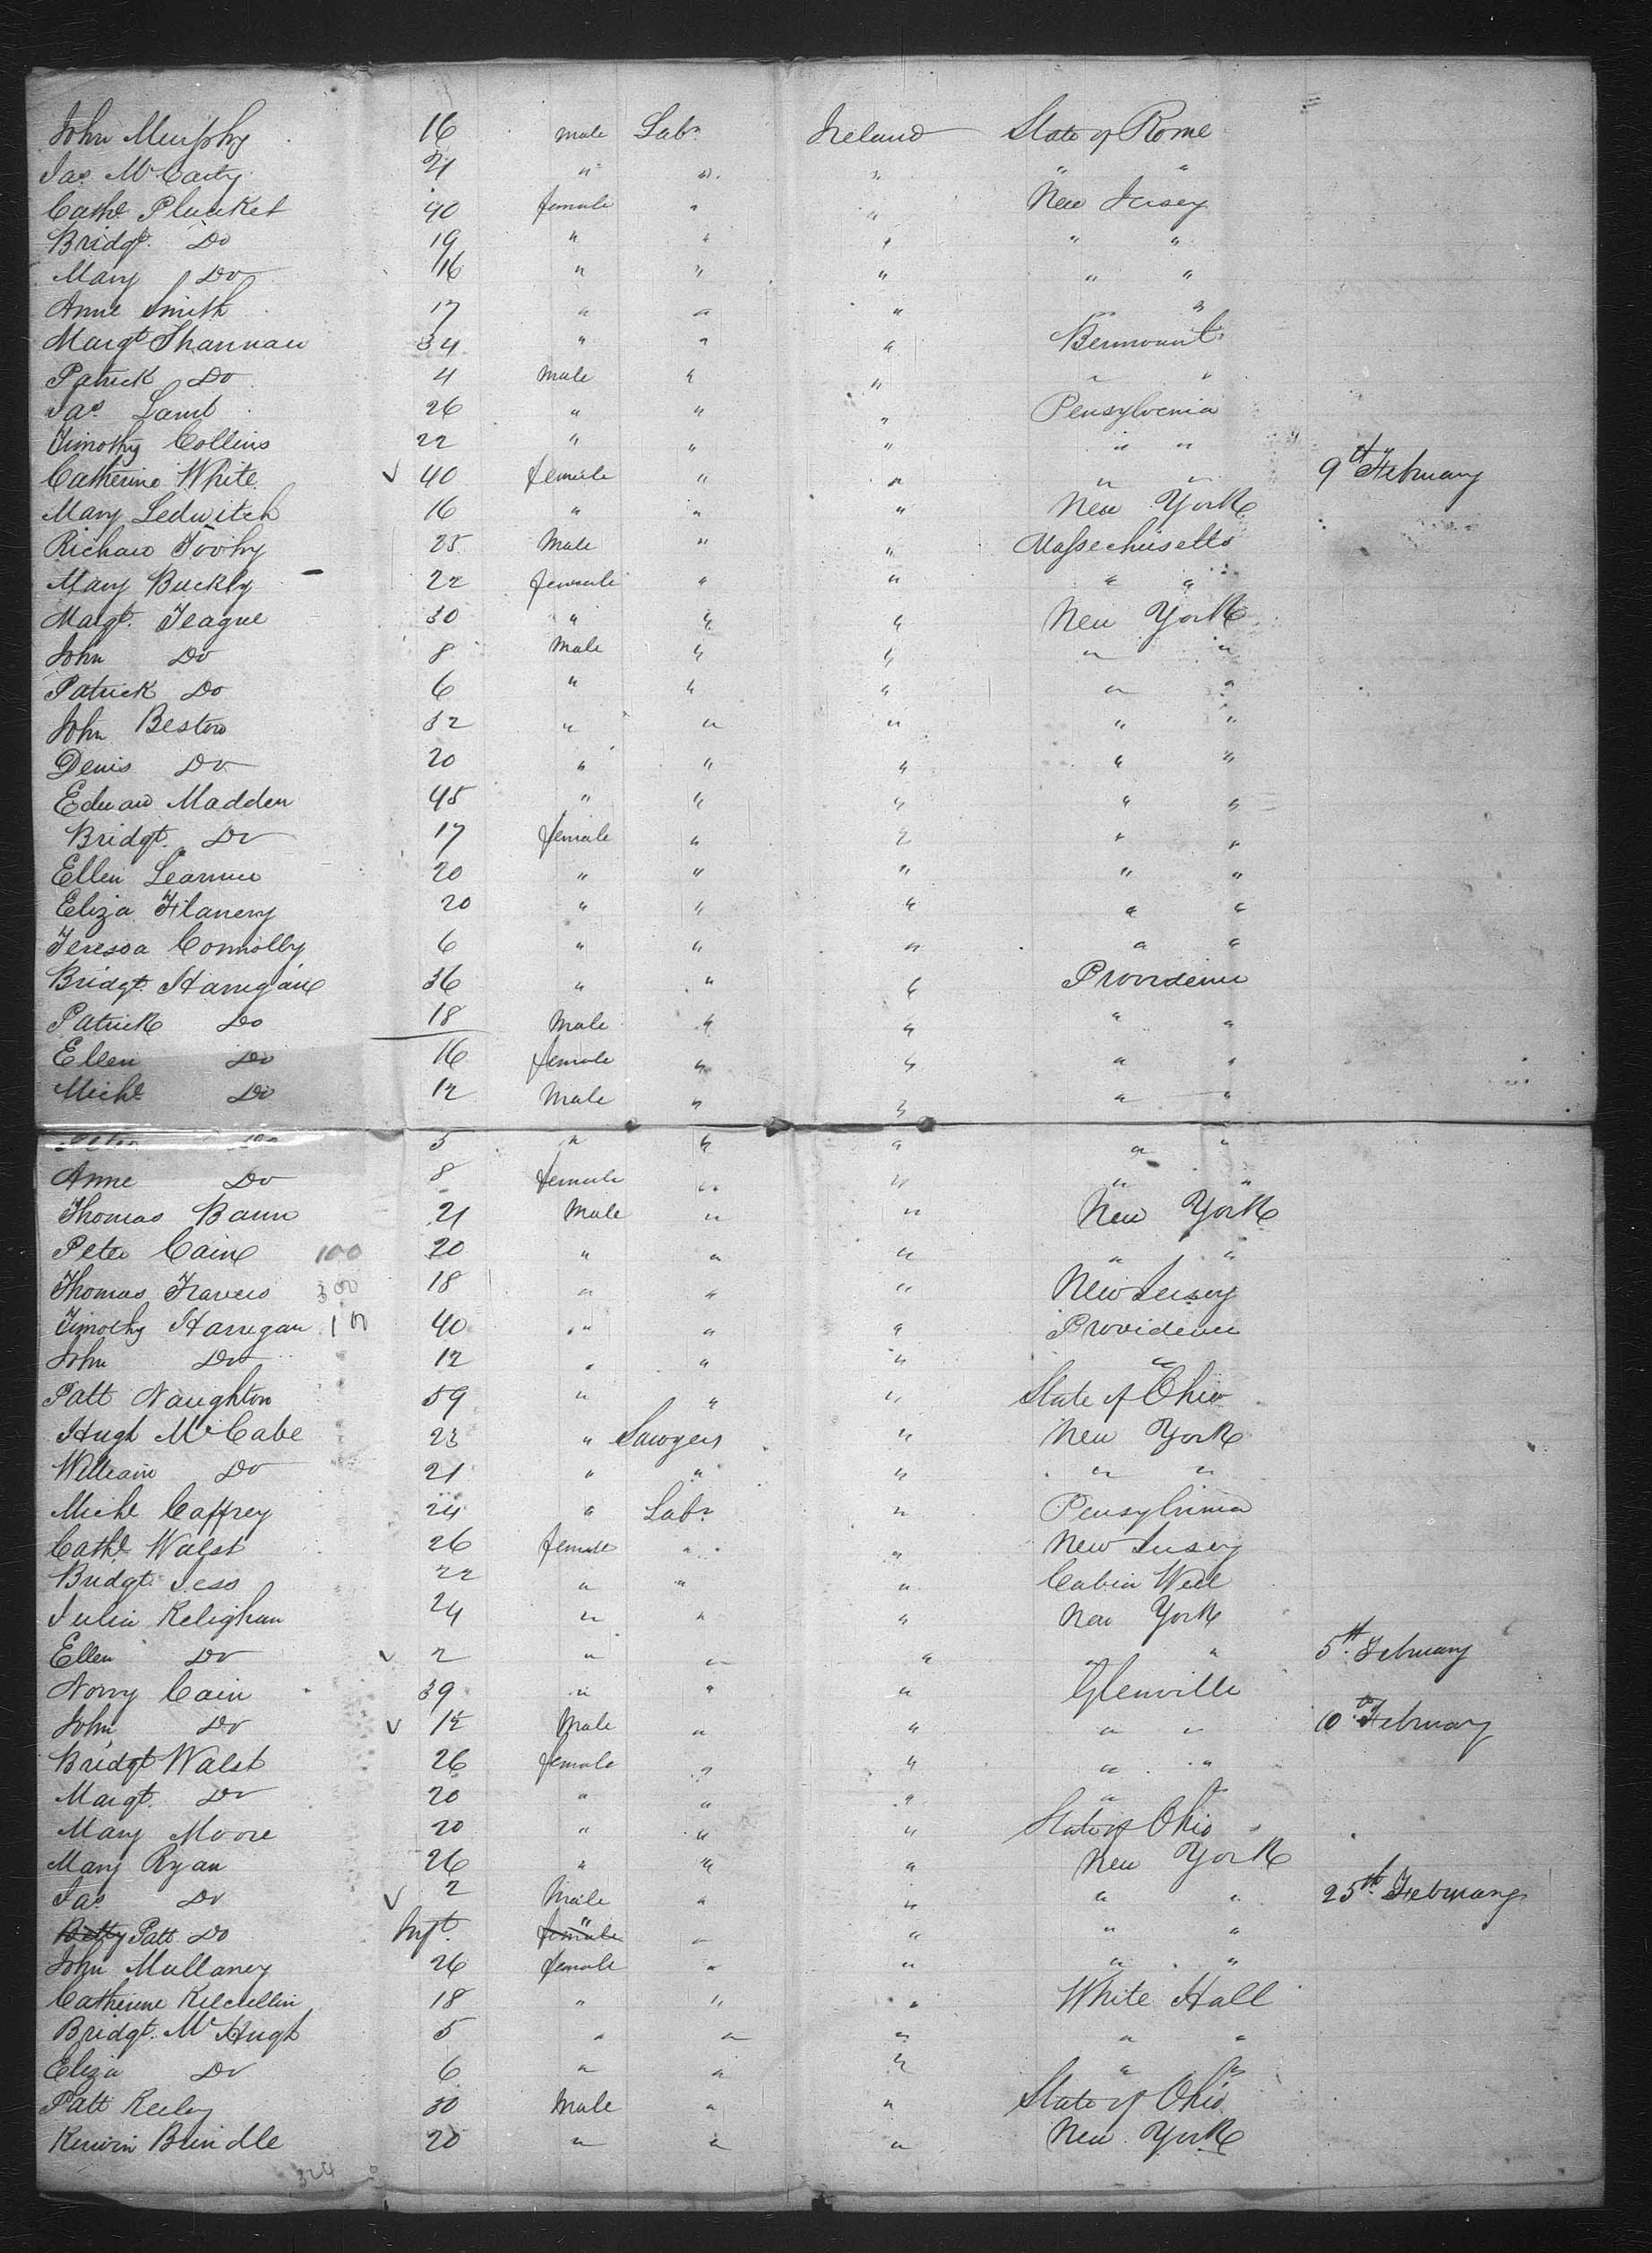 John Murphy 16 male Labr Ireland State of Rome
Jas. McCarty 21 " " " " "
Cathe Plucket 40 female " " New Jersey
Bridgt. Do 19 " " " " "
Mary Do 16 " " " " "
Anne Smith 17 " " " " "
Margt Shannan 34 " " " Bermount
Patrick Do 4 male " " " "
Jas. Lamb 26 " " " Pensylvenia
Timothy Collins 22 " " " " "
Catherine White 40 female " " " " 9th February
Mary Ledwitch 16 " " " New York
Richard Toohy 25 Male " " Massechusetts
Mary Buckly 22 female " " " "
Margt. Teague 30 " " " New York
John Do 8 Male " " " "
Patrick Do 6 " " " " "
John Beston 32 " " " " "
Denis Do 20 " " " " "
Edward Madden 45 " " " " "
Bridgt. Do 17 female " " " "
Ellen 20 " " " " "
Eliza Flanery 20 " " " " "
Teresoa Connolly 6 " " " " "
Bridgt. Harrigane 36 " " " Providence
Patrick Do 18 Male " " " "
Ellen Do 16 female " " " "
Michl. Do 12 Male " " " "
Do 5 " " " " "
Anne Do 8 female " " " "
Thomas Bann 21 Male " " New York
Peter Cain 100 20 " " " " "
Thomas Travers 300 18 " " " New Jersey
Timothy Harrigan 40 " " " Providence
John Do 12 " " " "
Patt Naughton 59 " " " State of Ohio
Hugh McCabe 23 " Sawyers " New York
William Do 21 " " " " "
Michl Caffrey 24 " Labr " Pensylvinia
Cathe Walsh 26 female " " New Jersey
Bridgt. Jess 22 " " " Cabin Well
Julia Kelighan 24 " " " New York
Ellen Do 2 " " " " " 5th February
Norry Cain 39 " " " Glenville
John Do 12 Male " " " " 10th February
Bridgt Walsh 26 female " " " "
Margt. Do 20 " " " " "
Mary Moore 20 " " " State of Ohio
Mary Ryan 26 " " " New York
Jas. Do 2 Male " " " " 25th February
Betty Patt Do Inft. female " " " " "
John Mullaney 26 female " " " "
Catherine Kilcullin 18 " " " White Hall
Bridgt. McHugh 5 " " " " "
Eliza Do 6 " " " " "
Patt Keeley 30 Male " " State of Ohio
Kerwin Brindle 20 " " " New York
324